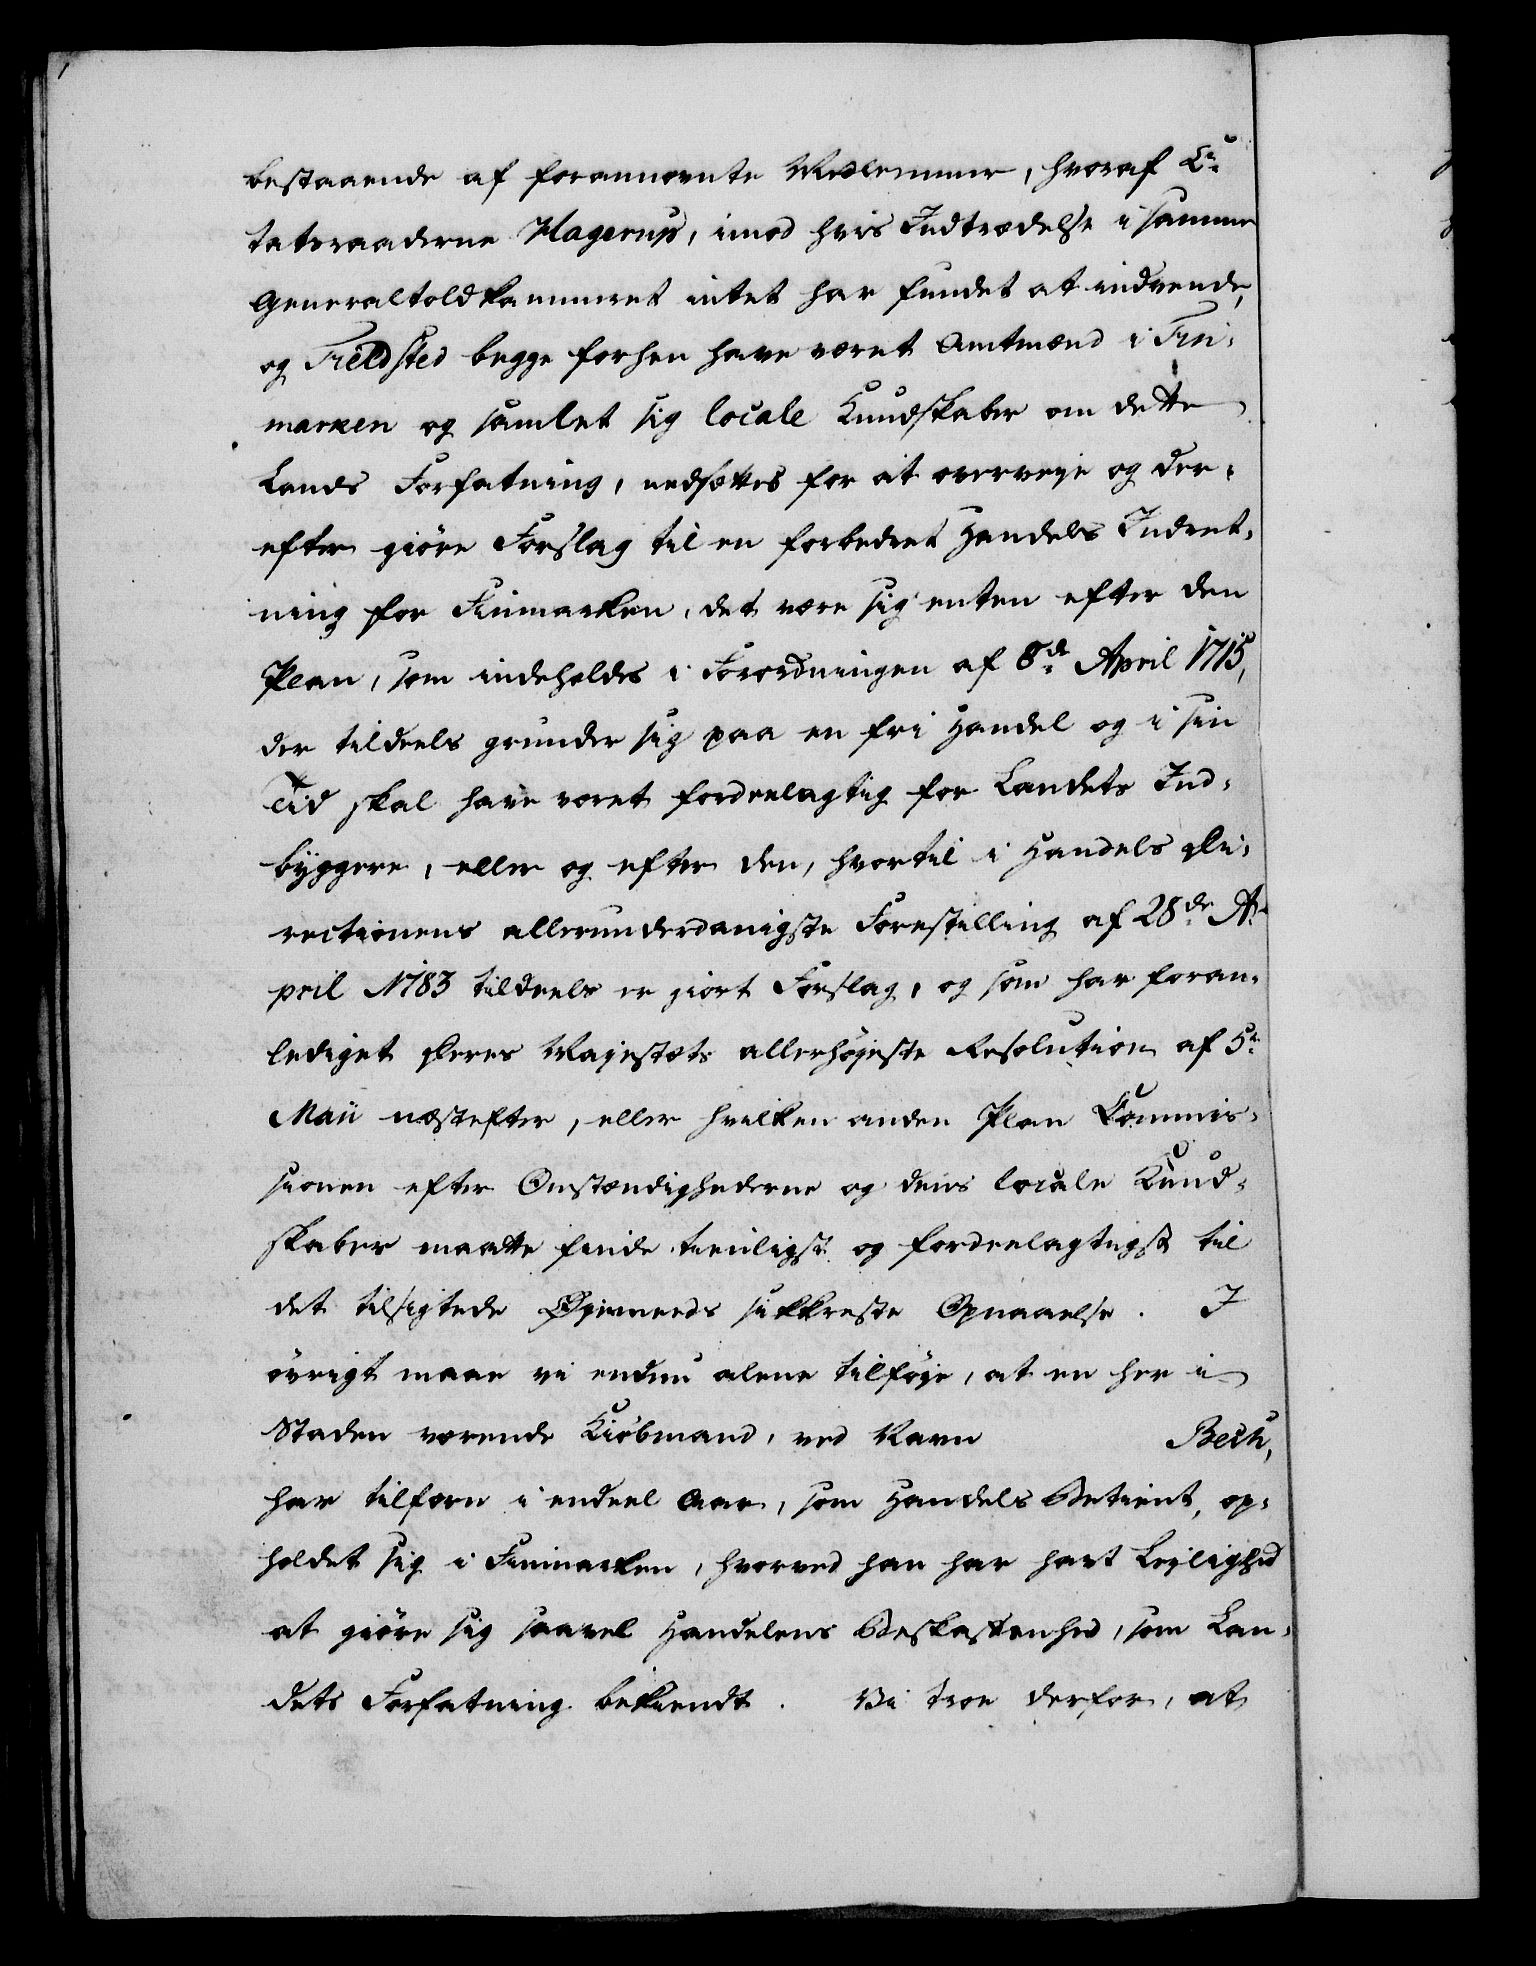 bestaaende af forannevnte Medlemmer, hvoraf E¬
tatsraaderne Hagerup, imod hvis Indtrædelse i samme
Generaltoldkammeret intet har fundet at indvende,
og Fieldsted begge forhen have været Amtmænd i Fin¬
marken og samlet sig locale Kundskaber om dette
Lands Forfatning, nedsættes for at overveje og der¬
efter giøre Forslag til en forbedret Handels Indret¬
ning for Finmarken, det være sig enten efter den
Plan, som indeholdes i Forordningen af 8de April 1715,
der tildeels grunder sig paa en fri Handel og i sin
Tid skal have været fordeelagtig for Landets Ind¬
byggere, eller og efter den, hvortil i Handels Di¬
rectionens allerunderdanigste Forestilling af 28de A¬
pril 1783 tildeels er giort Forslag, og som har foran¬
lediget Deres Majestæts allerhøjeste Resolution af 5te
Maii næstefter, eller hvilken anden Plan Commis¬
sionen efter Omstændighederne og dens locale Kund¬
skaber maatte finde tienligst og fordeelagtigst til
det tilsigtede Øjemeeds sikkreste Opnaaelse. I
øvrigt maae vi endnu alene tilføje, at en her i
Staden værende Kiøbmand, ved Navn Bech,
har tilforn i endeel Aar, som Handels Betient, op¬
holdet sig i Finmarken, hvorved han har havt Lejlighed
at giøre sig saavel Handelens Beskaffenhed, som Lan¬
dets Forfatning bekiendt. Vi troe derfor, at